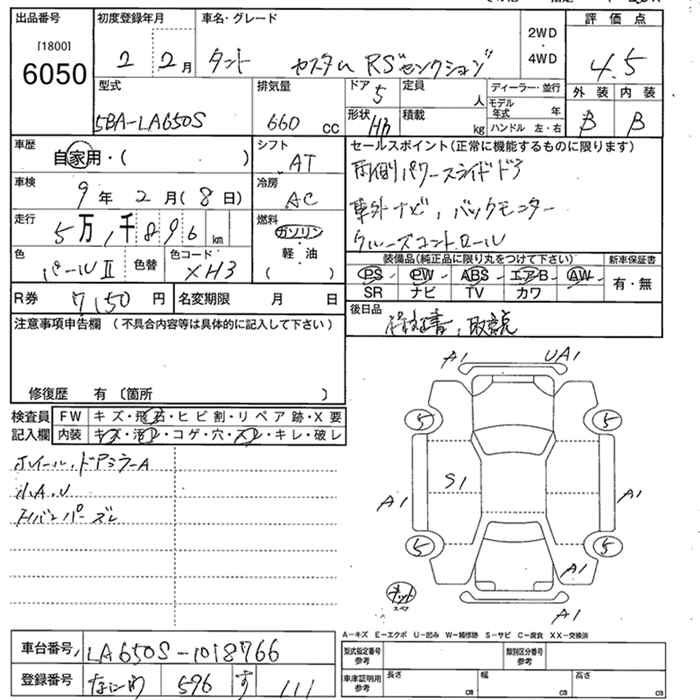 出品番号 初度登録年月 車名・グレード 評価点
[1800] 6050 2 2月 タント カスタム RS"セレクション" 2WD・4WD 4.5
型式 排気量 ドア 5 定員 人 ディーラー・並行 外装 内装
5BA-LA650S 660 cc 形状 HB 積載 kg モデル年式 年 B B
ハンドル 左・右
車歴 自家用・( ) シフト AT セールスポイント(正常に機能するものに限ります)
両側パワースライドドア
車検 9年 2月(8日) 冷房 AC
社外ナビ, バックモニター
走行 5万,1千896 km 燃料 ガソリン・軽油 ( )
クルーズコントロール
色 パールⅡ 色替 色コード XH3
装備品(純正品に限り丸をつけて下さい) 新車保証書
PS PW ABS エアB AW 有・無
SR ナビ TV カワ
R券 7,150円 名変期限 月 日
後日品 保証書, 取説
注意事項申告欄 (不具合内容等は具体的に記入して下さい)
修復歴 有〔箇所 〕
検査員記入欄 FW キズ・飛石・ヒビ割・リペア跡・X要
内装 キズ・汚レ・コゲ・穴・スレ・キレ・破レ
ホイール,ドアミラーA
小A,U
A1 UA1
5 5
S1
A1 A1
5 5
A1
A1
A-キズ E-エクボ U-凹み W-補修跡 S-サビ C-腐食 XX-交換済
車台番号 LA650S-1018766
登録番号 なにわ 596 す 111
型式指定番号 参考 類別区分番号 参考
車庫証明用 参考 長さ cm 幅 cm 高さ cm